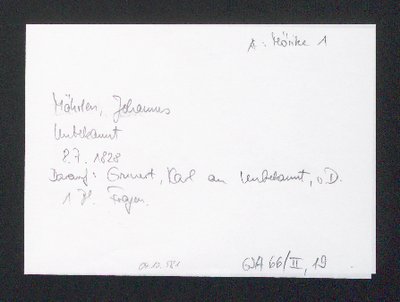 A: Mörike 1
Mährlen, Johannes
Unbekannt
8.7.1828
Darauf: Grunert, Karl an Unbekannt, o.D.
1 Bl. Fragm.
GSA 66/II, 19